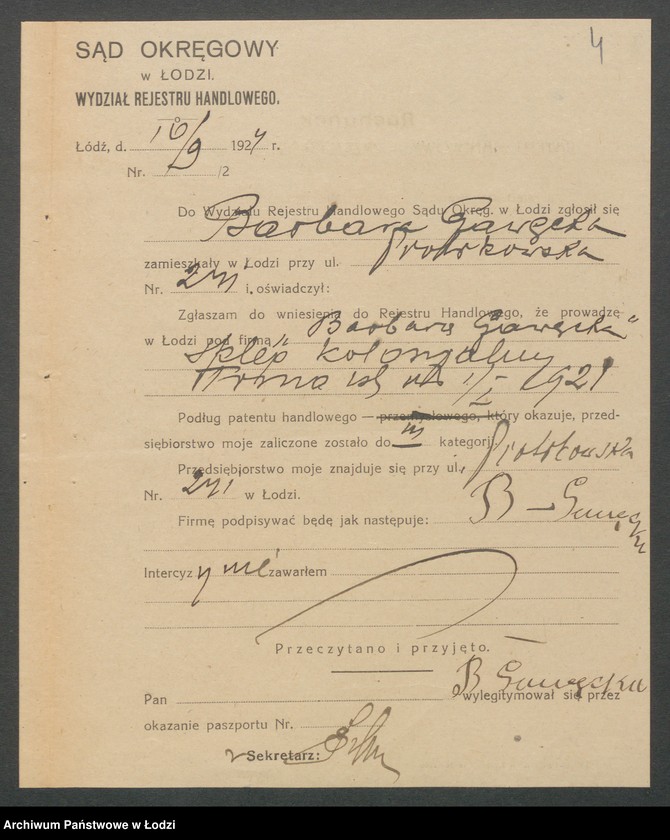 4
SĄD OKRĘGOWY
w ŁODZI.
WYDZIAŁ REJESTRU HANDLOWEGO.
Łódź, d. 16/9 1924 r.
Nr. /2
Do Wydziału Rejestru Handlowego Sądu Okręg. w Łodzi zgłosił się
Barbara Gawęcka
zamieszkały w Łodzi przy ul. Piotrkowska
Nr. i oświadczył:
Zgłaszam do wniesienia do Rejestru Handlowego, że prowadzę
w Łodzi pod firmą "Barbara Gawęcka"
Sklep kolonjalny
Firma istn. od 1/I 1921
Podług patentu handlowego — przemysłowego, który okazuje, przed-
siębiorstwo moje zaliczone zostało do III kategorji,
Przedsiębiorstwo moje znajduje się przy ul. Piotrkowska
Nr. w Łodzi.
Firmę podpisywać będę jak następuje: B. Gawęcka
Intercyzy nie zawarłem
Przeczytano i przyjęto.
B Gawęcka
Pan wylegitymował się przez
okazanie paszportu Nr.
Sekretarz:
Archiwum Państwowe w Łodzi